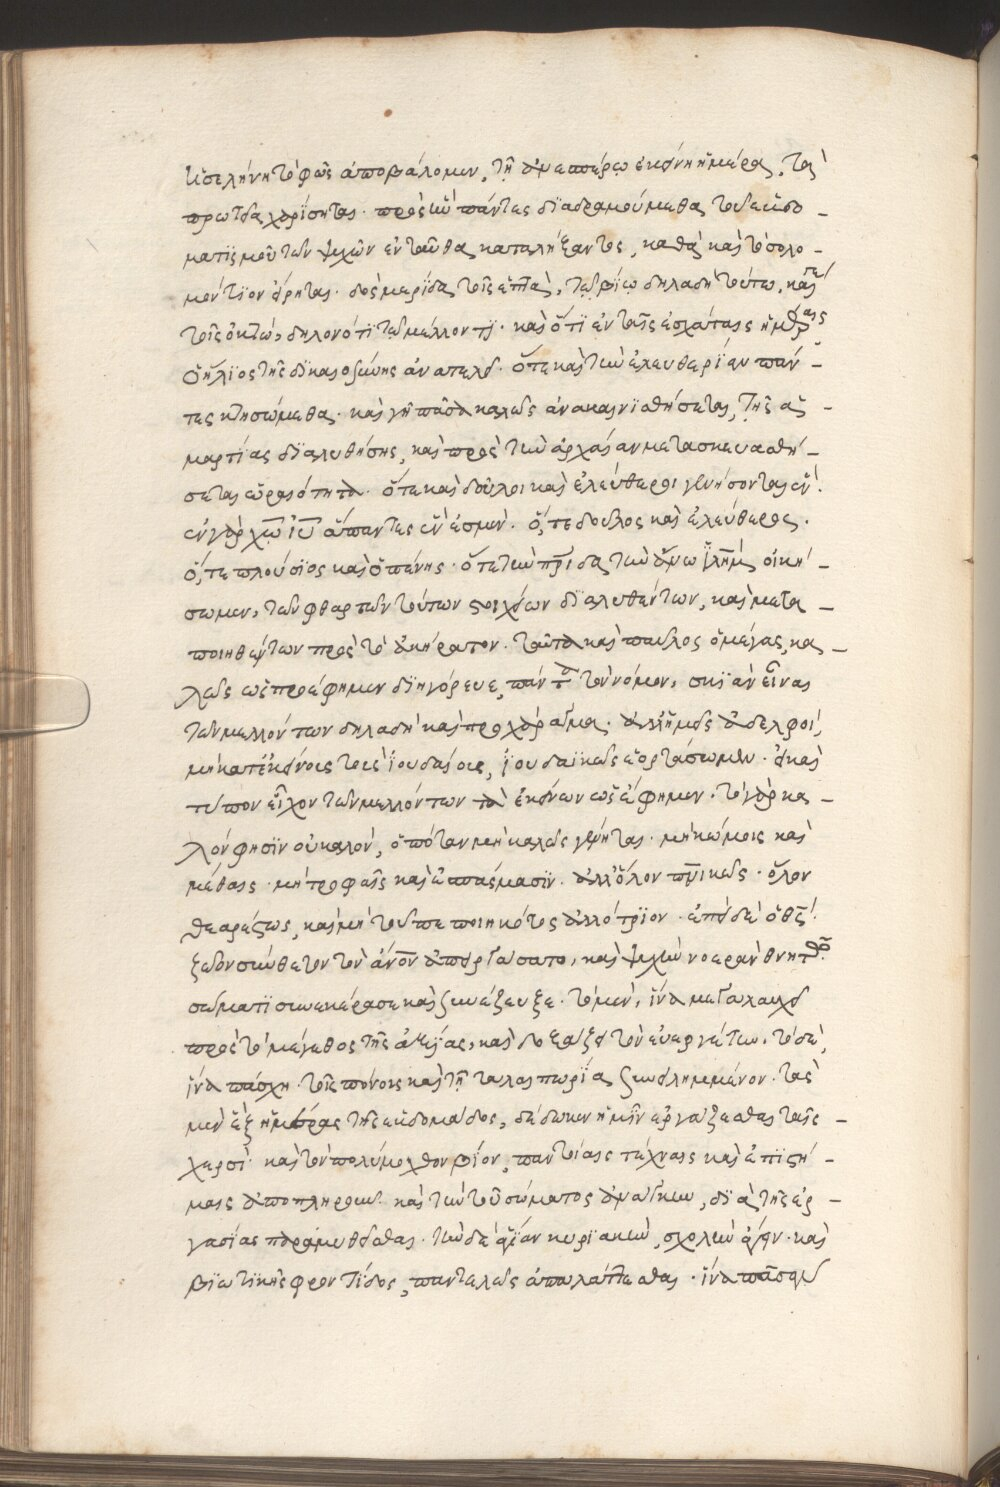 ἡ σελήνη τὸ φῶς ἀποβάλομεν, τῇ ἀνεσπέρω ἐκείνη ἡμέρα, τὰ
πρωτεῖα χαρίσηται. πρὸς ἣν πάντες διαδραμούμεθα τοῦ
ματισμοῦ τῶν ψυχῶν ἐνταῦθα καταλήξαντος, καθὰ καὶ τὸ σολο-
μόντιον εἴρηται. δὸς μερίδα τοῖς ἑπτὰ, τῷ βίῳ δηλαδὴ τούτω, καί γε
τοῖς ὀκτώ, δηλονότι τῷ μέλλοντι. καὶ ὅτι ἐν ταῖς ἐσχάταις ἡμέραις
ὁ ἥλιος τῆς δικαιοσύνης ἀνατελεῖ. ὅτε καὶ τὴν ἐλευθερίαν πάν-
τες κτησώμεθα. καὶ γῆ πᾶσα καλῶς ἀνακαινισθήσεται, τῆς ἁ-
μαρτίας διαλυθήσης, καὶ πρὸς τὴν ἀρχαίαν μετασκευασθή-
σεται ὡραιότητα. ὅτε καὶ δοῦλοι καὶ ἐλεύθεροι γενήσονται ἕν.
ἐν γὰρ χῶ ἰῦ ἅπαντες ἕν ἐσμὲν. ὅ, τε δοῦλος καὶ ἐλεύθερος.
ὅ, τε πλούσιος καὶ ὁ πένης. ὅτε τὴν πρίδα τὴν ἄνω ἱλὴμ οἰκή-
σωμεν, τῶν φθαρτῶν τούτων στοιχείων διαλυθέντων, καὶ μετα-
ποιηθέντων πρὸς τὸ ἀκήρατον. ταῦτα καὶ παῦλος ὁ μέγας, κα-
λῶς ὡς προέφημεν διηγόρευε, πάντα τὸν νόμον, σκιὰν εἶναι
τῶν μελλόντων δηλαδὴ καὶ προχάραγμα. ἀλλ' ἡμεῖς ἀδελφοί,
μὴ κατ' ἐκείνοις τοῖς ἰουδαίοις, ἰουδαϊκῶς ἑορτάσωμεν. εἰ καὶ
τύπον εἶχον τῶν μελλόντων τὰ ἐκείνων ὡς ἔφημεν. τὸ γὰρ κα-
λόν φησὶν οὐ καλόν, ὁπόταν μὴ καλῶς γένηται. μὴ κώμοις καὶ
μέθαις. μὴ τροφαῖς καὶ ἐπαίσμασιν. ἀλλ' ὅλον πνικῶς. ὅλον
θεαρέστως, καὶ μὴ τοῦ πεποιηκότος ἀλλότριον. ἐπεὶ δὲ ὁ θς
ξαδον σύνθετον τὸν ἄνον ἀπειργάσατο, καὶ ψυχὴν νοερὰν θνητῶ
σώματι συνεκέρασε καὶ ξυνέζευξε. τὸ μὲν, ἵνα μεγαλαυχεῖ
πρὸς τὸ μέγεθος τῆς ἀξίας, καὶ δοξάζει τὸν εὐεργέτην. τὸ δὲ,
ἵνα πάσχη τοῖς πόνοις καὶ τῇ ταλαιπωρία ξυνειλημμένον. τὰς
μὲν ἓξ ἡμέρας τῆς ἑβδομάδος, δέδωκεν ἡμῖν ἐργάζεσθαι ταῖς
χερσὶ. καὶ τὸν πολύμοχθον βίον, παντοίαις τέχναις καὶ ἐπιστή-
μαις ἀποπληροῦν. καὶ τὴν τοῦ σώματος ἀνάγκην, διὰ τῆς ἐρ-
γασίας παραμυθεῖσθαι. τὴν δὲ ἁγίαν κυριακὴν, σχολὴν ἄγειν. καὶ
βιωτικῆς φροντίδος, παντελῶς ἀπαλάττεσθαι. ἵνα πᾶσαν